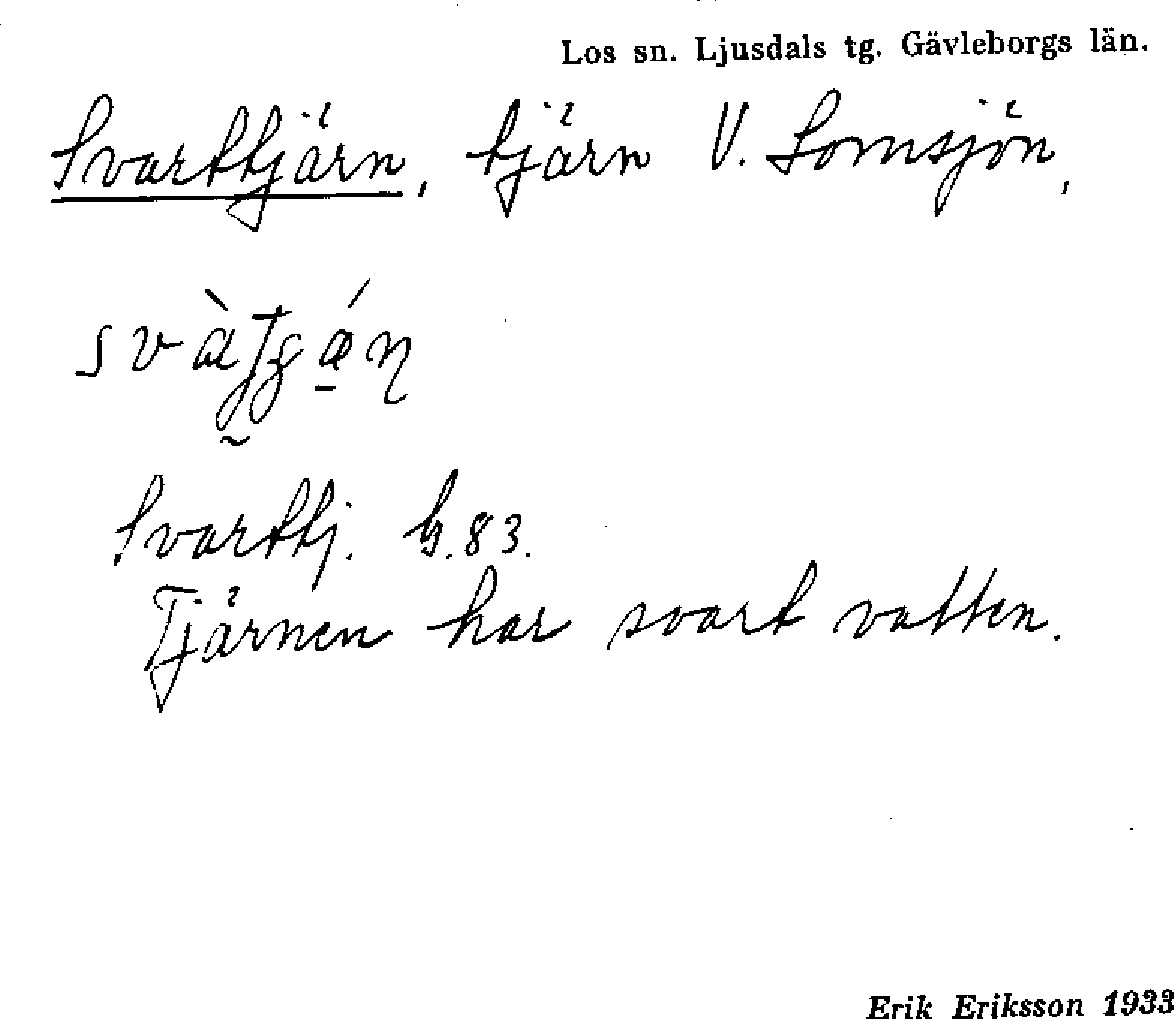 Los sn. Ljusdals tg. Gävleborgs län.
Svarttjärn, tjärn V. Lomsjön,
Svarttj. G.83.
Tjärnen har svart vatten.
Erik Eriksson 1933